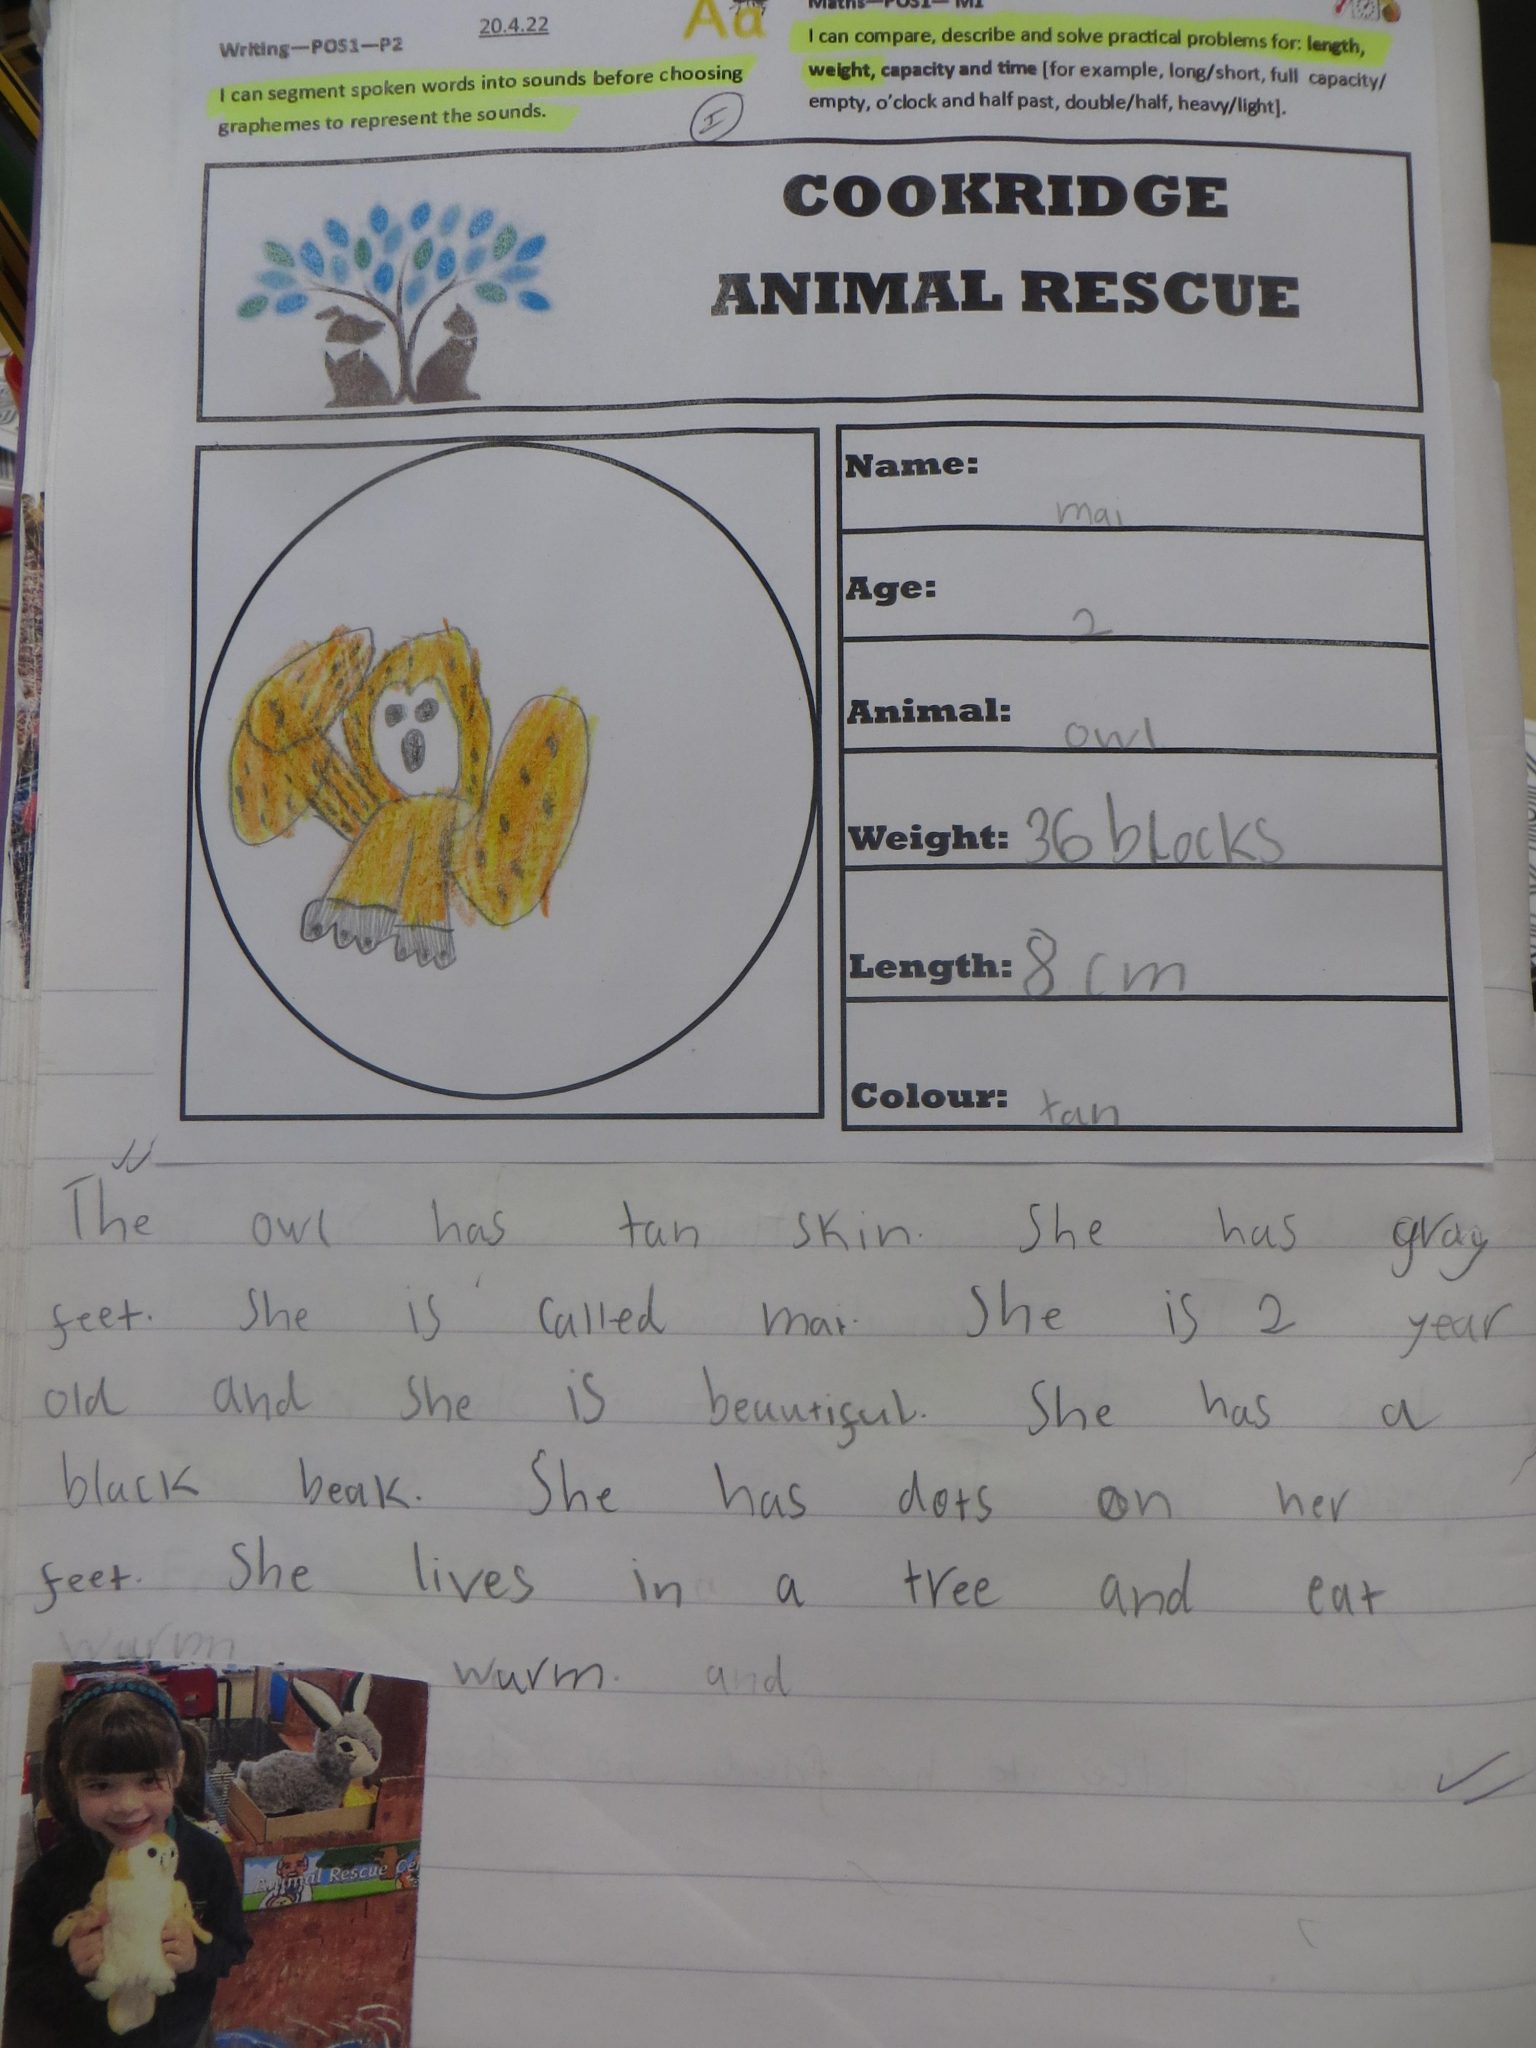 Writing—POS1—P2
20.4.22
Aa
Maths—POS1— M1
I can segment spoken words into sounds before choosing
graphemes to represent the sounds.
I
I can compare, describe and solve practical problems for: length,
weight, capacity and time [for example, long/short, full capacity/
empty, o'clock and half past, double/half, heavy/light].
COOKRIDGE
ANIMAL RESCUE
Name: mai
Age: 2
Animal: owl
Weight: 36 blocks
Length: 8 cm
Colour: tan
The owl has tan skin. She has gray
feet. She is called mai. She is 2 year
old and she is beautiful. She has a
black beak. She has dots on her
feet. She lives in a tree and eat
wurm wurm. and
Animal Rescue Ce